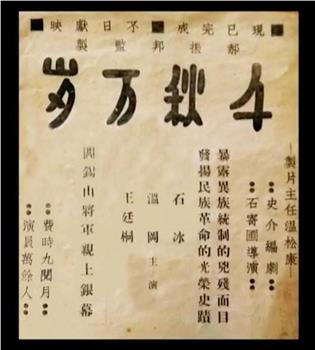 現已完成 不日獻映
郝振邦監製
千秋万岁
—製片主任溫松康—
史介編劇
石寄圃導演
暴露異族統制的兇殘面目
發揚民族革命的光榮史蹟
石冰
溫岡 主演
王廷桐
閻錫山將軍親上銀幕
費時九閱月
演員萬餘人